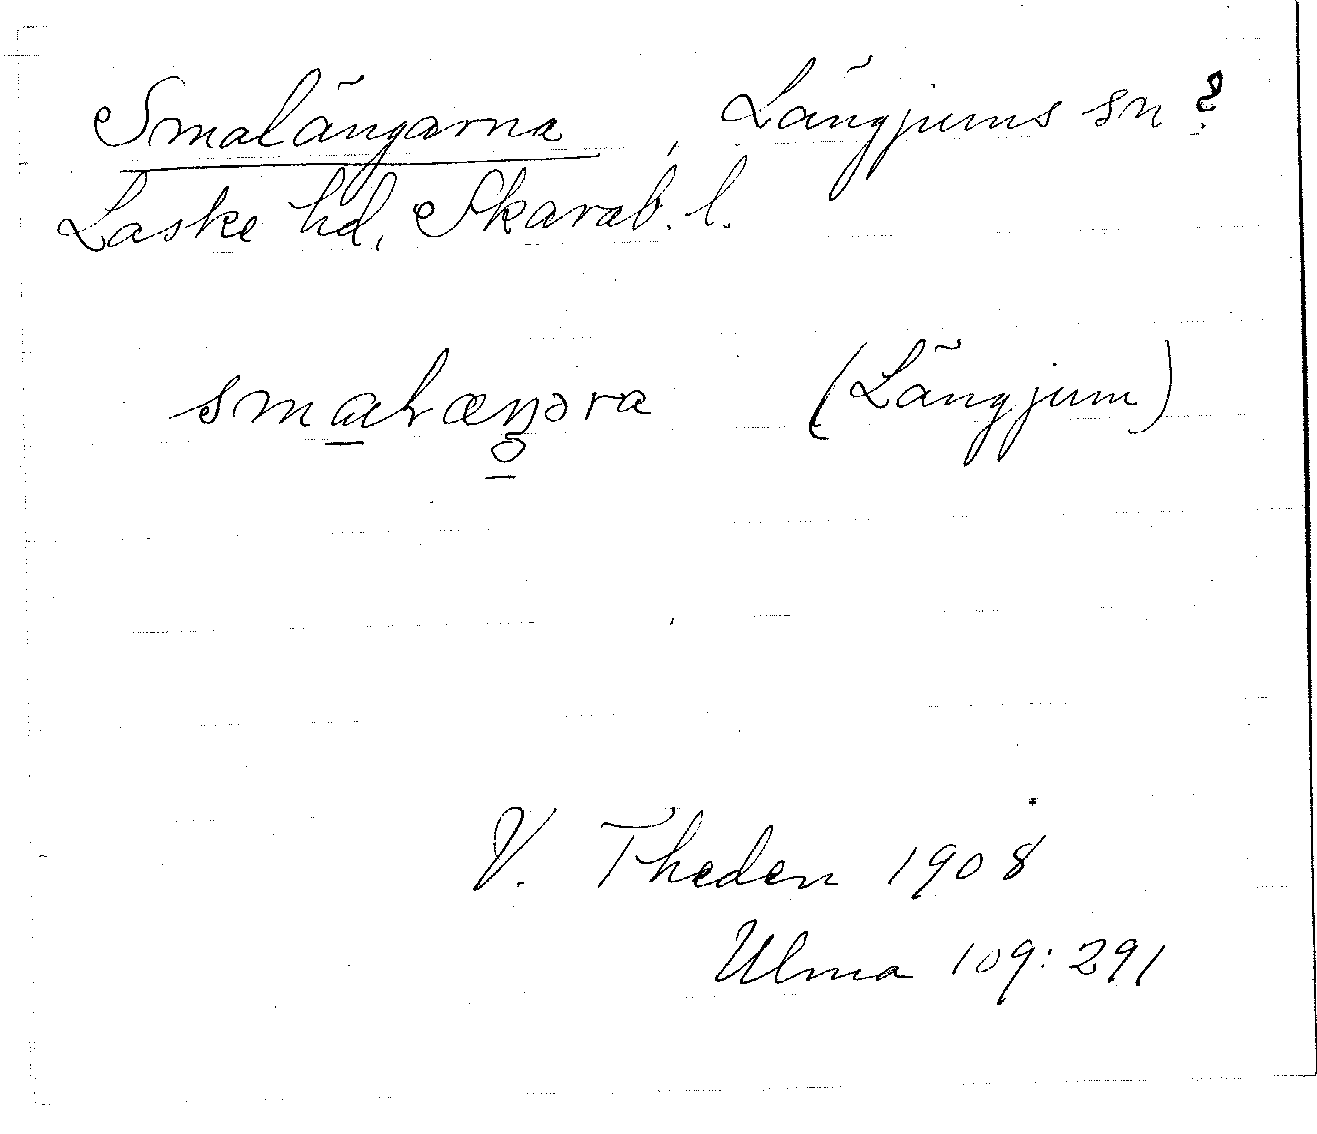 Smalängarna, Längjums sn?
Laske hd, Skarab. l.
smalæŋəra (Längjum)
V. Theden 1908
Ulma 109:291